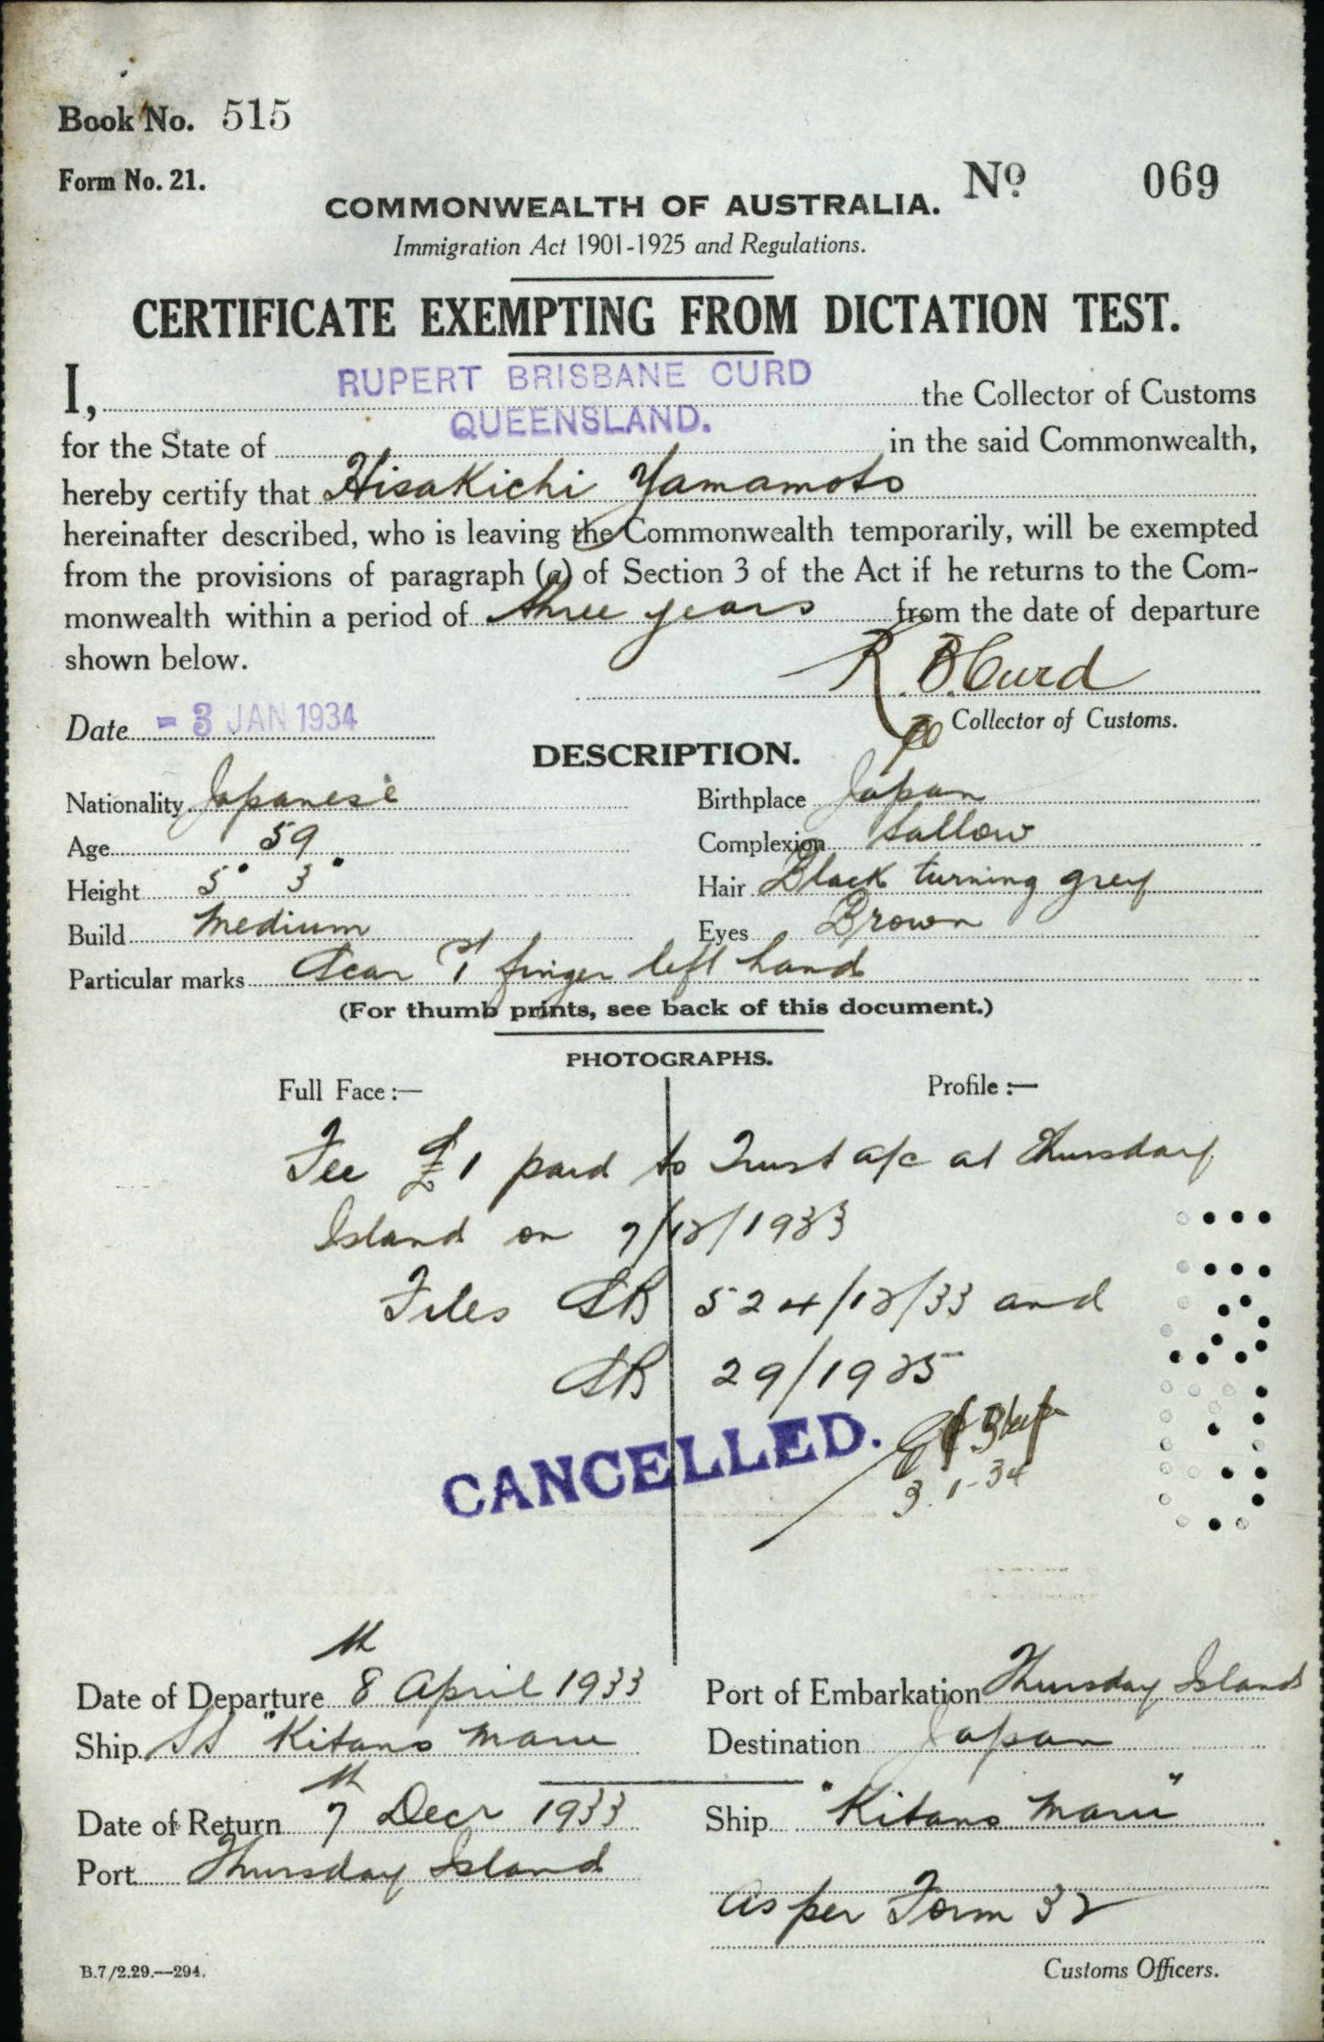 Book No. 515
Form No. 21.
No 069
COMMONWEALTH OF AUSTRALIA.
Immigration Act 1901-1925 and Regulations.
CERTIFICATE EXEMPTING FROM DICTATION TEST.
I, RUPERT BRISBANE CURD the Collector of Customs
for the State of QUEENSLAND. in the said Commonwealth,
hereby certify that Hisakichi Yamamoto
hereinafter described, who is leaving the Commonwealth temporarily, will be exempted
from the provisions of paragraph (a) of Section 3 of the Act if he returns to the Com-
monwealth within a period of three years from the date of departure
shown below.
R. B. Curd
Date - 3 JAN 1934 Collector of Customs.
DESCRIPTION.
Nationality Japanese Birthplace Japan
Age 59 Complexion Sallow
Height 5' 3" Hair Black turning grey
Build Medium Eyes Brown
Particular marks Scar 1st finger left hand
(For thumb prints, see back of this document.)
PHOTOGRAPHS.
Full Face :— Profile :—
Fee £1 paid to Trust a/c at Thursday
Island on 7/12/1933
Files SB 524/12/33 and
SB 29/1925
CANCELLED.
3.1-34
Date of Departure 8th April 1933 Port of Embarkation Thursday Island
Ship SS "Kitano Maru Destination Japan
Date of Return 7th Decr 1933 Ship "Kitano Maru"
Port Thursday Island
As per Form 32
B.7/2.29.—294. Customs Officers.